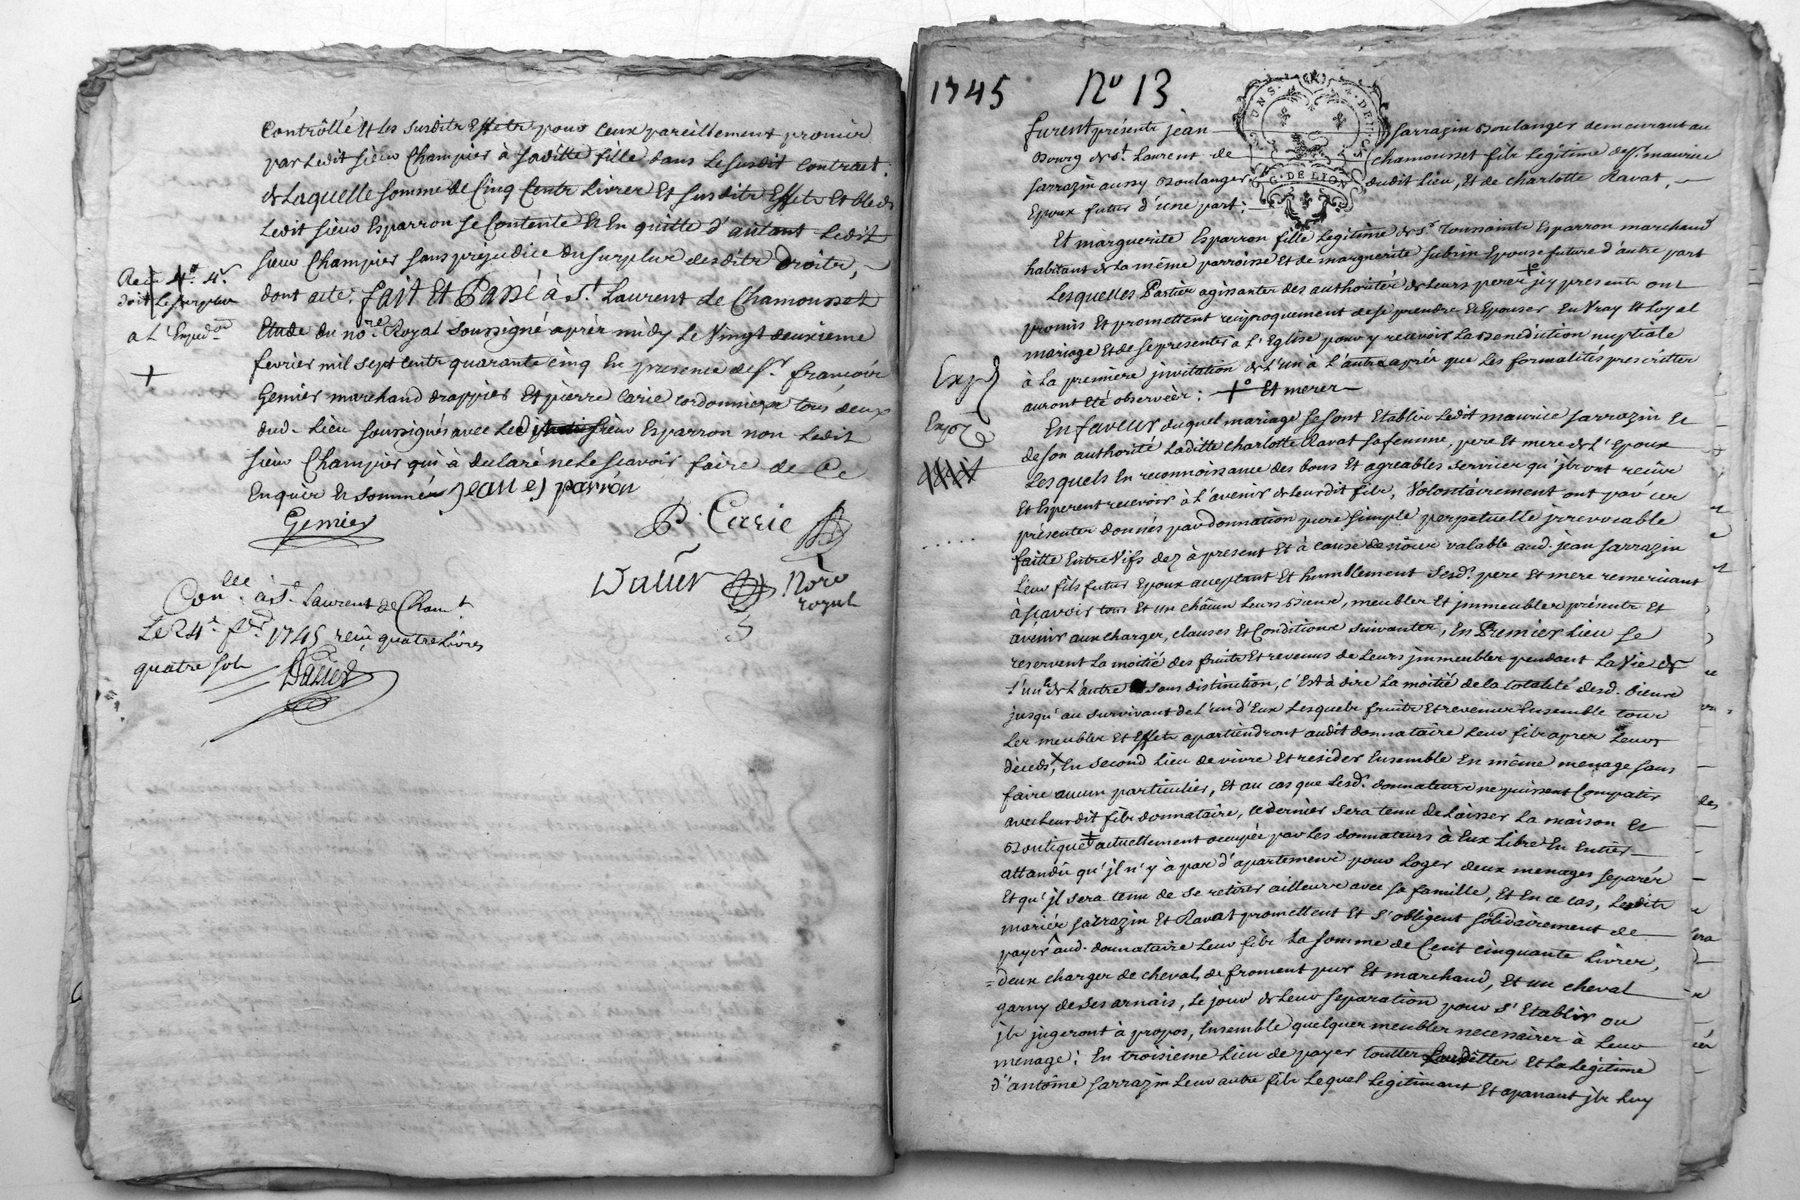 Controllé Et les susdits Effets pour ceux pareillement promis
par Ledit sieur Champier à saditte fille dans Le susdit contract.
de Laquelle somme de Cinq Cents Livres Et susdits Effets
Ledit sieur Esparron se Contente Et En quitte d'autant Ledit
sieur Champier sans préjudice du surplus desdits droits,
dont acte. fait Et Passé à St. Laurent de Chamousset
Etude du nore. Royal soussigné après midy Le vingt deuxieme
fevrier mil sept cents quarante cinq En presence de Sr. françois
Gemier marchand drappier Et pierre Carie Cordonnier tous deux
dud. Lieu soussignés avec Ledit sieur Esparron non Ledit
sieur Champier qui à declaré ne Le sçavoir faire de Ce
Enquis Et sommés Jean esparron
Reçu 4# 4s
doit Le surplus
a L'Exped.on
+
Gemier
P. Carie
Dalier
Nore
royal
Con.llé à St. Laurent de Cham.t
Le 24e. f.er 1745 reçu quatre Livres
quatre sols Dalier
1745 No 13
furent présents jean Sarrazin Boulanger demeurant au
Bourg de St. Laurent de Chamousset fils Legitime de Sr. maurice
Sarrazin aussy Boulanger dudit Lieu, Et de Charlotte Ravat,
Epoux futur d'une part;
UNS. 4. DEN.S
G. DE LION
Et marguerite Esparron fille Legitime de Sr. toussaints Esparron marchand
habitant de La même parroisse Et de marguerite Subrin Epouse future d'autre part
Lesquelles Parties agissantes des authorités de Leurs peres + jcy presents ont
promis Et promettent reciproquement de se prendre Et Epouser En Vray Et Loyal
mariage Et de se presenter à L'Eglise pour y recevoir La Benediction nuptiale
à La premiere jnvitation de L'un à L'autre après que Les formalités prescrittes
auront Eté observées; + Et meres
Exp.
Exp.
En faveur duquel mariage se sont Etablis Ledit maurice Sarrazin Et
de son authorité Laditte Charlotte Ravat sa femme, pere Et mere de L'Epoux
Lesquels En reconnoissance des bons Et agreables services qu'jls ont reçus
Et Esperent recevoir à L'avenir de Leurdit fils, Volontairement ont par ces
présentes donnés par donnation pure simple perpetuelle jrrevocable
faitte Entre Vifs dez à present Et à cause de nôces valable aud. jean Sarrazin
Leur fils futur Epoux acceptant Et humblement Sesd. pere Et mere remerciant
à sçavoir tous Et un châcun Leurs Biens, meubles Et jmmeubles présents Et
avenir aux charges, clauses Et Conditions suivantes, En Premier Lieu se
reservent La moitié des fruits Et revenus de Leurs jmmeubles pendant La Vie de
L'un Et L'autre sans distinction, c'Est à dire La moitié de la totalité desd. Biens
jusqu'au survivant de L'un d'Eux Lesquels fruits Et revenus Ensemble tous
Les meubles Et Effets apartiendront audit donnataire Leur fils aprez Leurs
décèds, En second Lieu de vivre Et resider Ensemble En même menage sans
faire aucun particulier, Et au cas que Lesd. donnateurs ne puissent Compatir
avec Leurdit fils donnataire, ce dernier sera tenu de Laisser La maison Et
Boutique + actuellement occupée par Les donnateurs à Eux Libre En Entier
attandu qu'jl n'y à pas d'apartement pour Loger deux menages separés
Et qu'jl sera tenu de se retirer ailleurs avec sa famille, Et En ce cas, Lesdits
mariés Sarrazin Et Ravat promettent Et s'obligent solidairement de
payer aud. donnataire Leur fils La somme de Cent cinquante Livres,
deux charges de cheval de froment pur Et marchand, Et un cheval
garny de ses arnais, Le jour de Leur separation pour s'Etablir ou
jls jugeront à propos, Ensemble quelques meubles necessaires à Leur
menage; En troisieme Lieu de payer touttes Et La Legitime
d'antoine Sarrazin Leur autre fils Lequel Legitimant Et apanant jls Luy